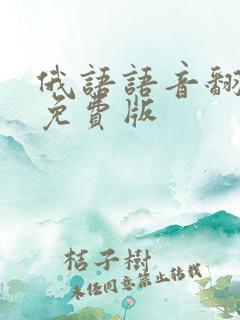 俄語語音翻
免費版
桔子樹
未经同意禁止转载